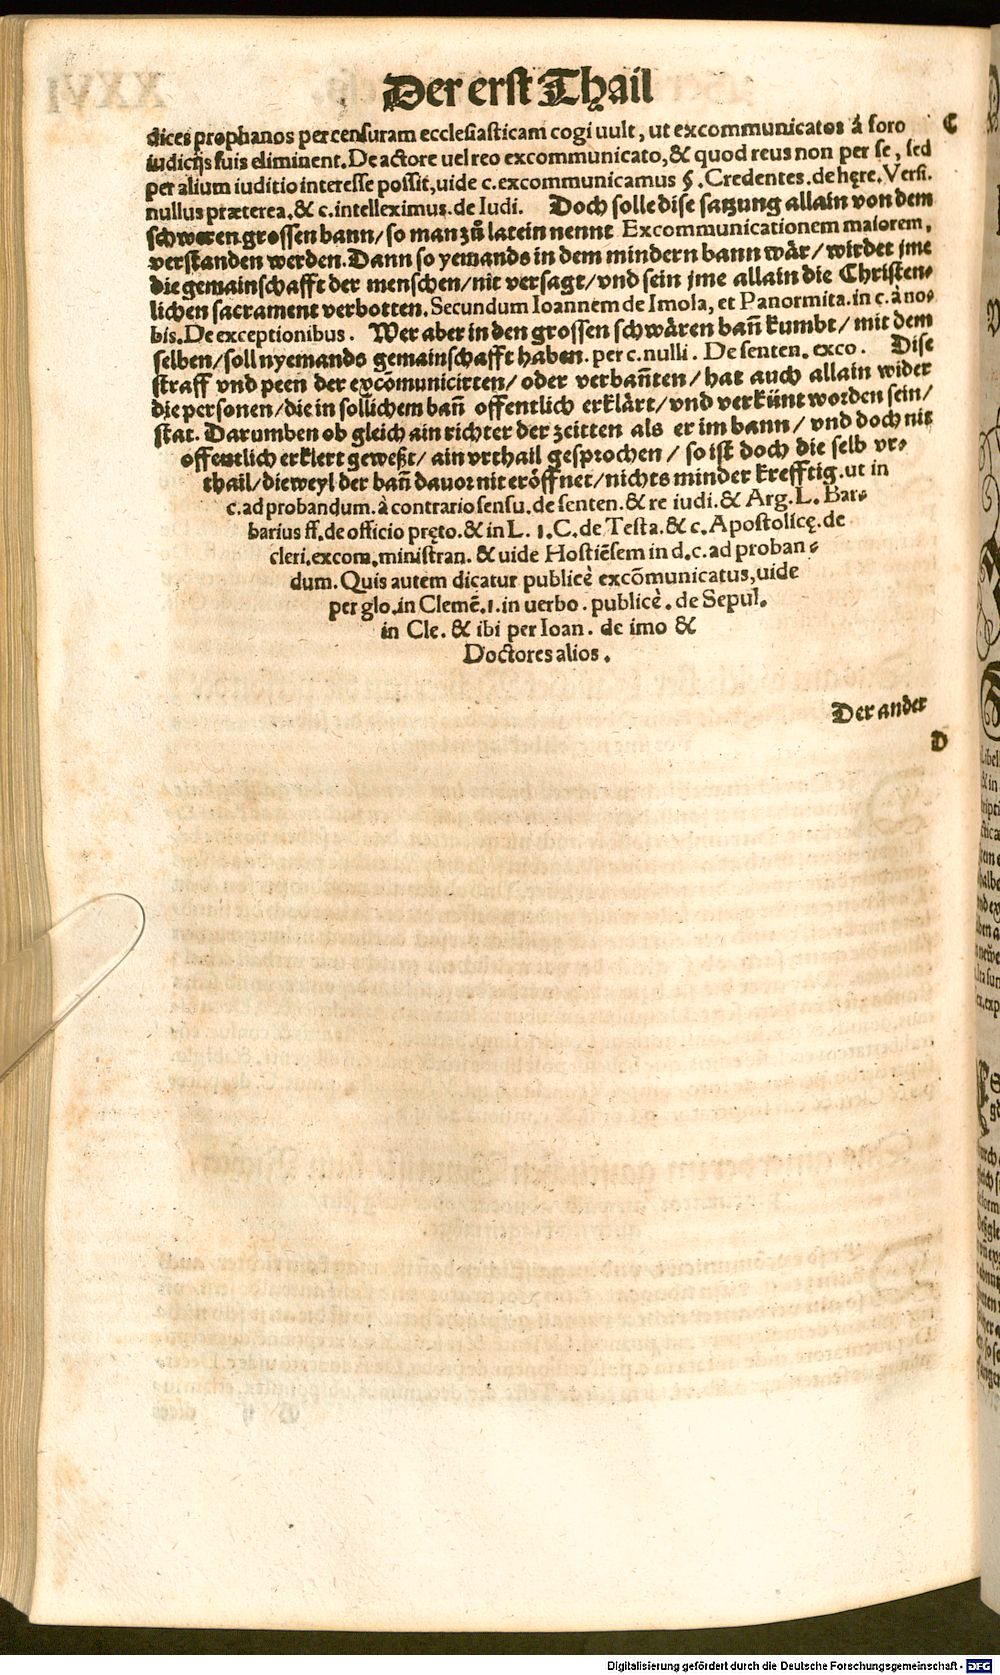 Der erst Thail
dices prophanos per censuram ecclesiasticam cogi uult, ut excommunicatos á foro C
iudicijs suis eliminent. De actore uel reo excommunicato, & quod reus non per se, sed
per alium iuditio interesse possit, uide c. excommunicamus §. Credentes. de hęre. Versi.
nullus præterea. & c. intelleximus. de Iudi. Doch solle dise satzung allain von dem
schweren grossen bann / so man zů latein nennt Excommunicationem maiorem,
verstanden werden. Dann so yemands in dem mindern bann wär / wirdet jme
die gemainschafft der menschen / nit versagt / vnd sein jme allain die Christen-
lichen sacrament verbotten. Secundum Ioannem de Imola, et Panormita. in c. à no-
bis. De exceptionibus. Wer aber in den grossen schwären bañ kumbt / mit dem
selben / soll nyemands gemainschafft haben. per c. nulli. De senten. exco. Dise
straff vnd peen der excõmunicirten / oder verbañten / hat auch allain wider
die personen / die in sollichem bañ offentlich erklärt / vnd verkünt worden sein /
stat. Darumben ob gleich ain richter der zeitten als er im bann / vnd doch nit
offentlich erklert geweßt / ain vrthail gesprochen / so ist doch die selb vr-
thail / dieweyl der bañ dauor nit eröffnet / nichts minder krefftig. ut in
c. ad probandum. à contrario sensu. de senten. & re iudi. & Arg. L. Bar-
barius ff. de officio pręto. & in L. 1. C. de Testa. & c. Apostolicę. de
cleri. excom. ministran. & uide Hostiẽsem in d. c. ad proban-
dum. Quis autem dicatur publicè excõmunicatus, uide
per glo. in Clemẽ. 1. in uerbo. publicè. de Sepul.
in Cle. & ibi per Ioan. de imo &
Doctores alios.
Der ander
D
Digitalisierung gefördert durch die Deutsche Forschungsgemeinschaft - DFG